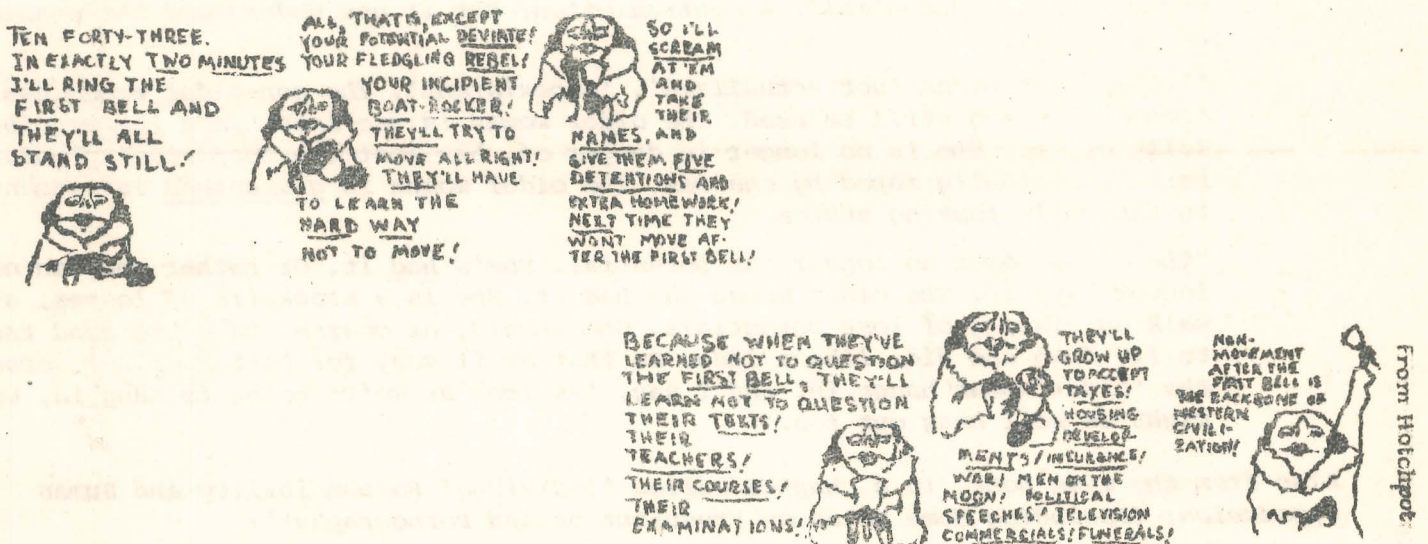 TEN FORTY-THREE.
IN EXACTLY TWO MINUTES
I'LL RING THE
FIRST BELL AND
THEY'LL ALL
STAND STILL.
ALL, THAT IS, EXCEPT
YOUR POTENTIAL DEVIATE!
YOUR FLEDGLING REBEL!
YOUR INCIPIENT
BOAT-ROCKER!
THEY'LL TRY TO
MOVE ALL RIGHT!
THEY'LL HAVE
TO LEARN THE
HARD WAY
NOT TO MOVE!
SO I'LL
SCREAM
AT 'EM
AND
TAKE
THEIR
NAMES, AND
GIVE THEM FIVE
DETENTIONS AND
EXTRA HOMEWORK!
NEXT TIME THEY
WONT MOVE AF-
TER THE FIRST BELL!
BECAUSE WHEN THEY'VE
LEARNED NOT TO QUESTION
THE FIRST BELL, THEY'LL
LEARN NOT TO QUESTION
THEIR TEXTS!
THEIR
TEACHERS!
THEIR COURSES!
THEIR
EXAMINATIONS!
THEY'LL
GROW UP
TO ACCEPT
TAXES!
HOUSING
DEVELOP-
MENTS! INSURANCE!
WAR! MEN ON THE
MOON! POLITICAL
SPEECHES! TELEVISION
COMMERCIALS! FUNERALS!
NON-
MOVEMENT
AFTER THE
FIRST BELL IS
THE BACKBONE OF
WESTERN
CIVILI-
ZATION!
From Hotchpot